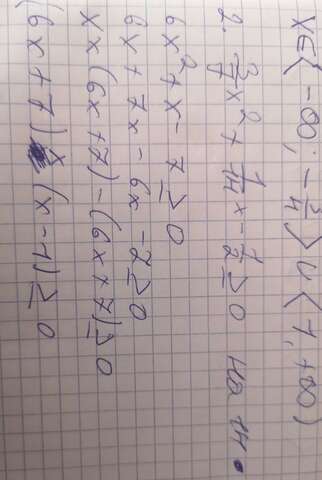 x∈< -∞; -3/4 > ∪ < 1, +∞)
2. 3/7x² + 1/14x - 1/2 ≥ 0 на 14.
6x² + x - 7 ≥ 0
6x + 7x - 6x - 2 ≥ 0
Xx (6x+7) - (6x+7) ≥ 0
(6x+7) (x-1) ≥ 0